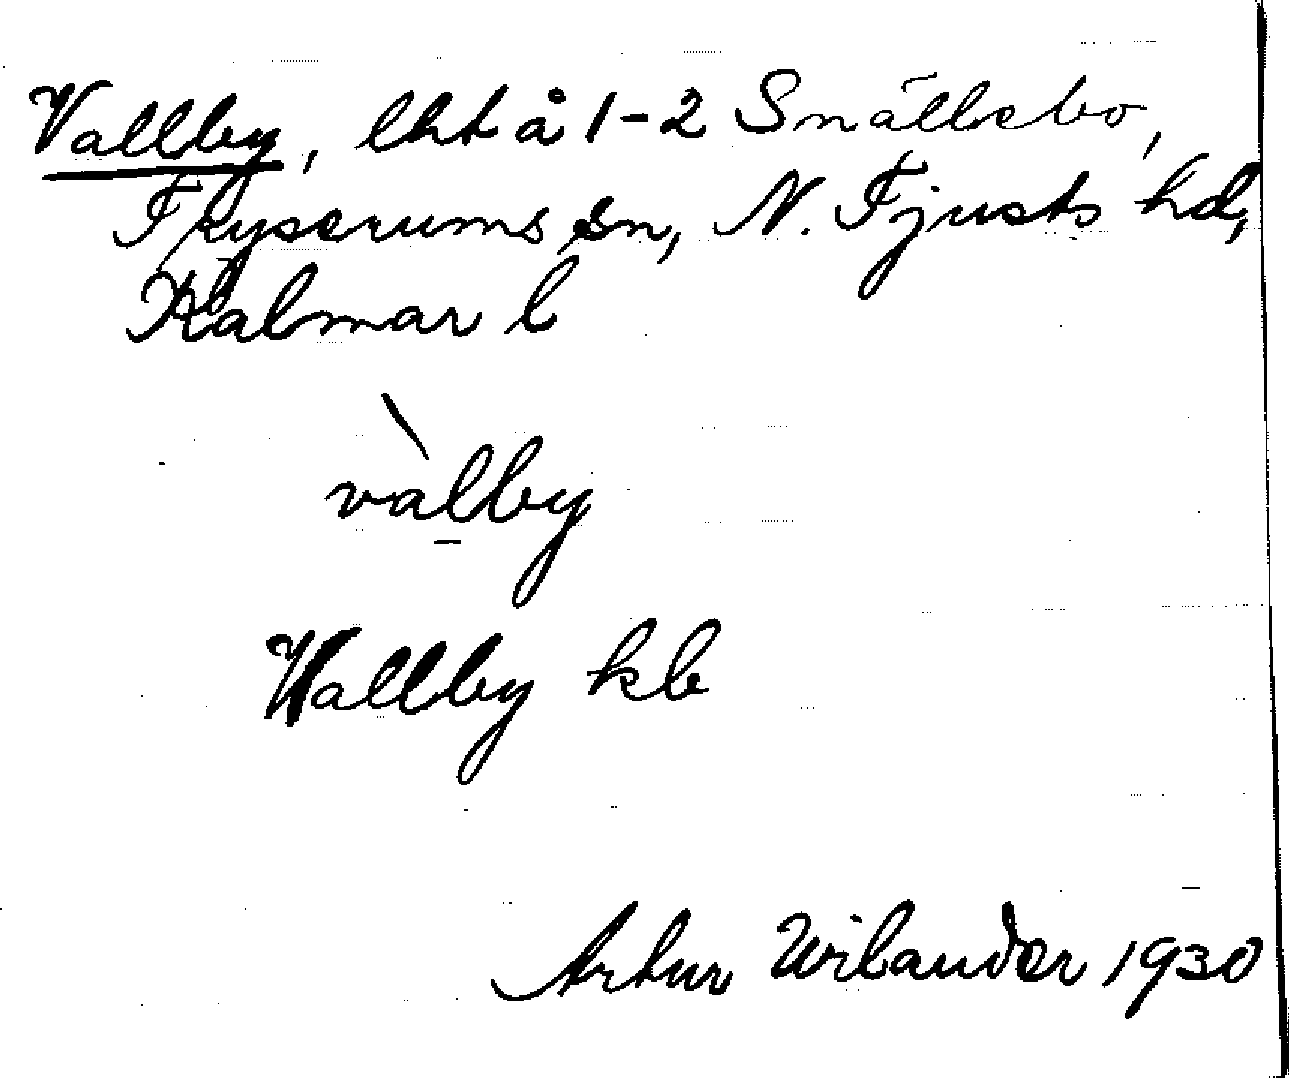 Vallby, lht å 1-2 Smällsbo,
Tryserums sn, N. Tjusts hd,
Kalmar l
vàlby
Wallby kb
Artur Wilander 1930